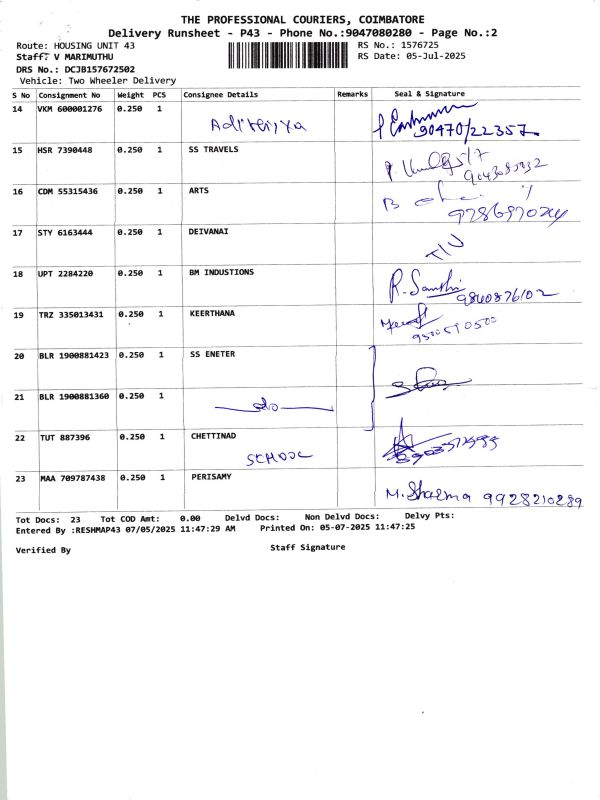 THE PROFESSIONAL COURIERS, COIMBATORE
Delivery Runsheet - P43 - Phone No.:9047080280 - Page No.:2
Route: HOUSING UNIT 43 RS No.: 1576725
Staff: V MARIMUTHU RS Date: 05-Jul-2025
DRS No.: DCJB157672502
Vehicle: Two Wheeler Delivery
S No Consignment No Weight PCS Consignee Details Remarks Seal & Signature
14 VKM 600001276 0.250 1
90470/22357
15 HSR 7390448 0.250 1 SS TRAVELS
16 CDM 55315436 0.250 1 ARTS
17 STY 6163444 0.250 1 DEIVANAI
18 UPT 2284220 0.250 1 BM INDUSTIONS R. Santhi
9840876102
19 TRZ 335013431 0.250 1 KEERTHANA
20 BLR 1900881423 0.250 1 SS ENETER
21 BLR 1900881360 0.250 1 do
22 TUT 887396 0.250 1 CHETTINAD
SCHOOL
23 MAA 709787438 0.250 1 PERISAMY
M. Sharma 9928210289
Tot Docs: 23 Tot COD Amt: 0.00 Delvd Docs: Non Delvd Docs: Delvy Pts:
Entered By :RESHMAP43 07/05/2025 11:47:29 AM Printed On: 05-07-2025 11:47:25
Verified By Staff Signature